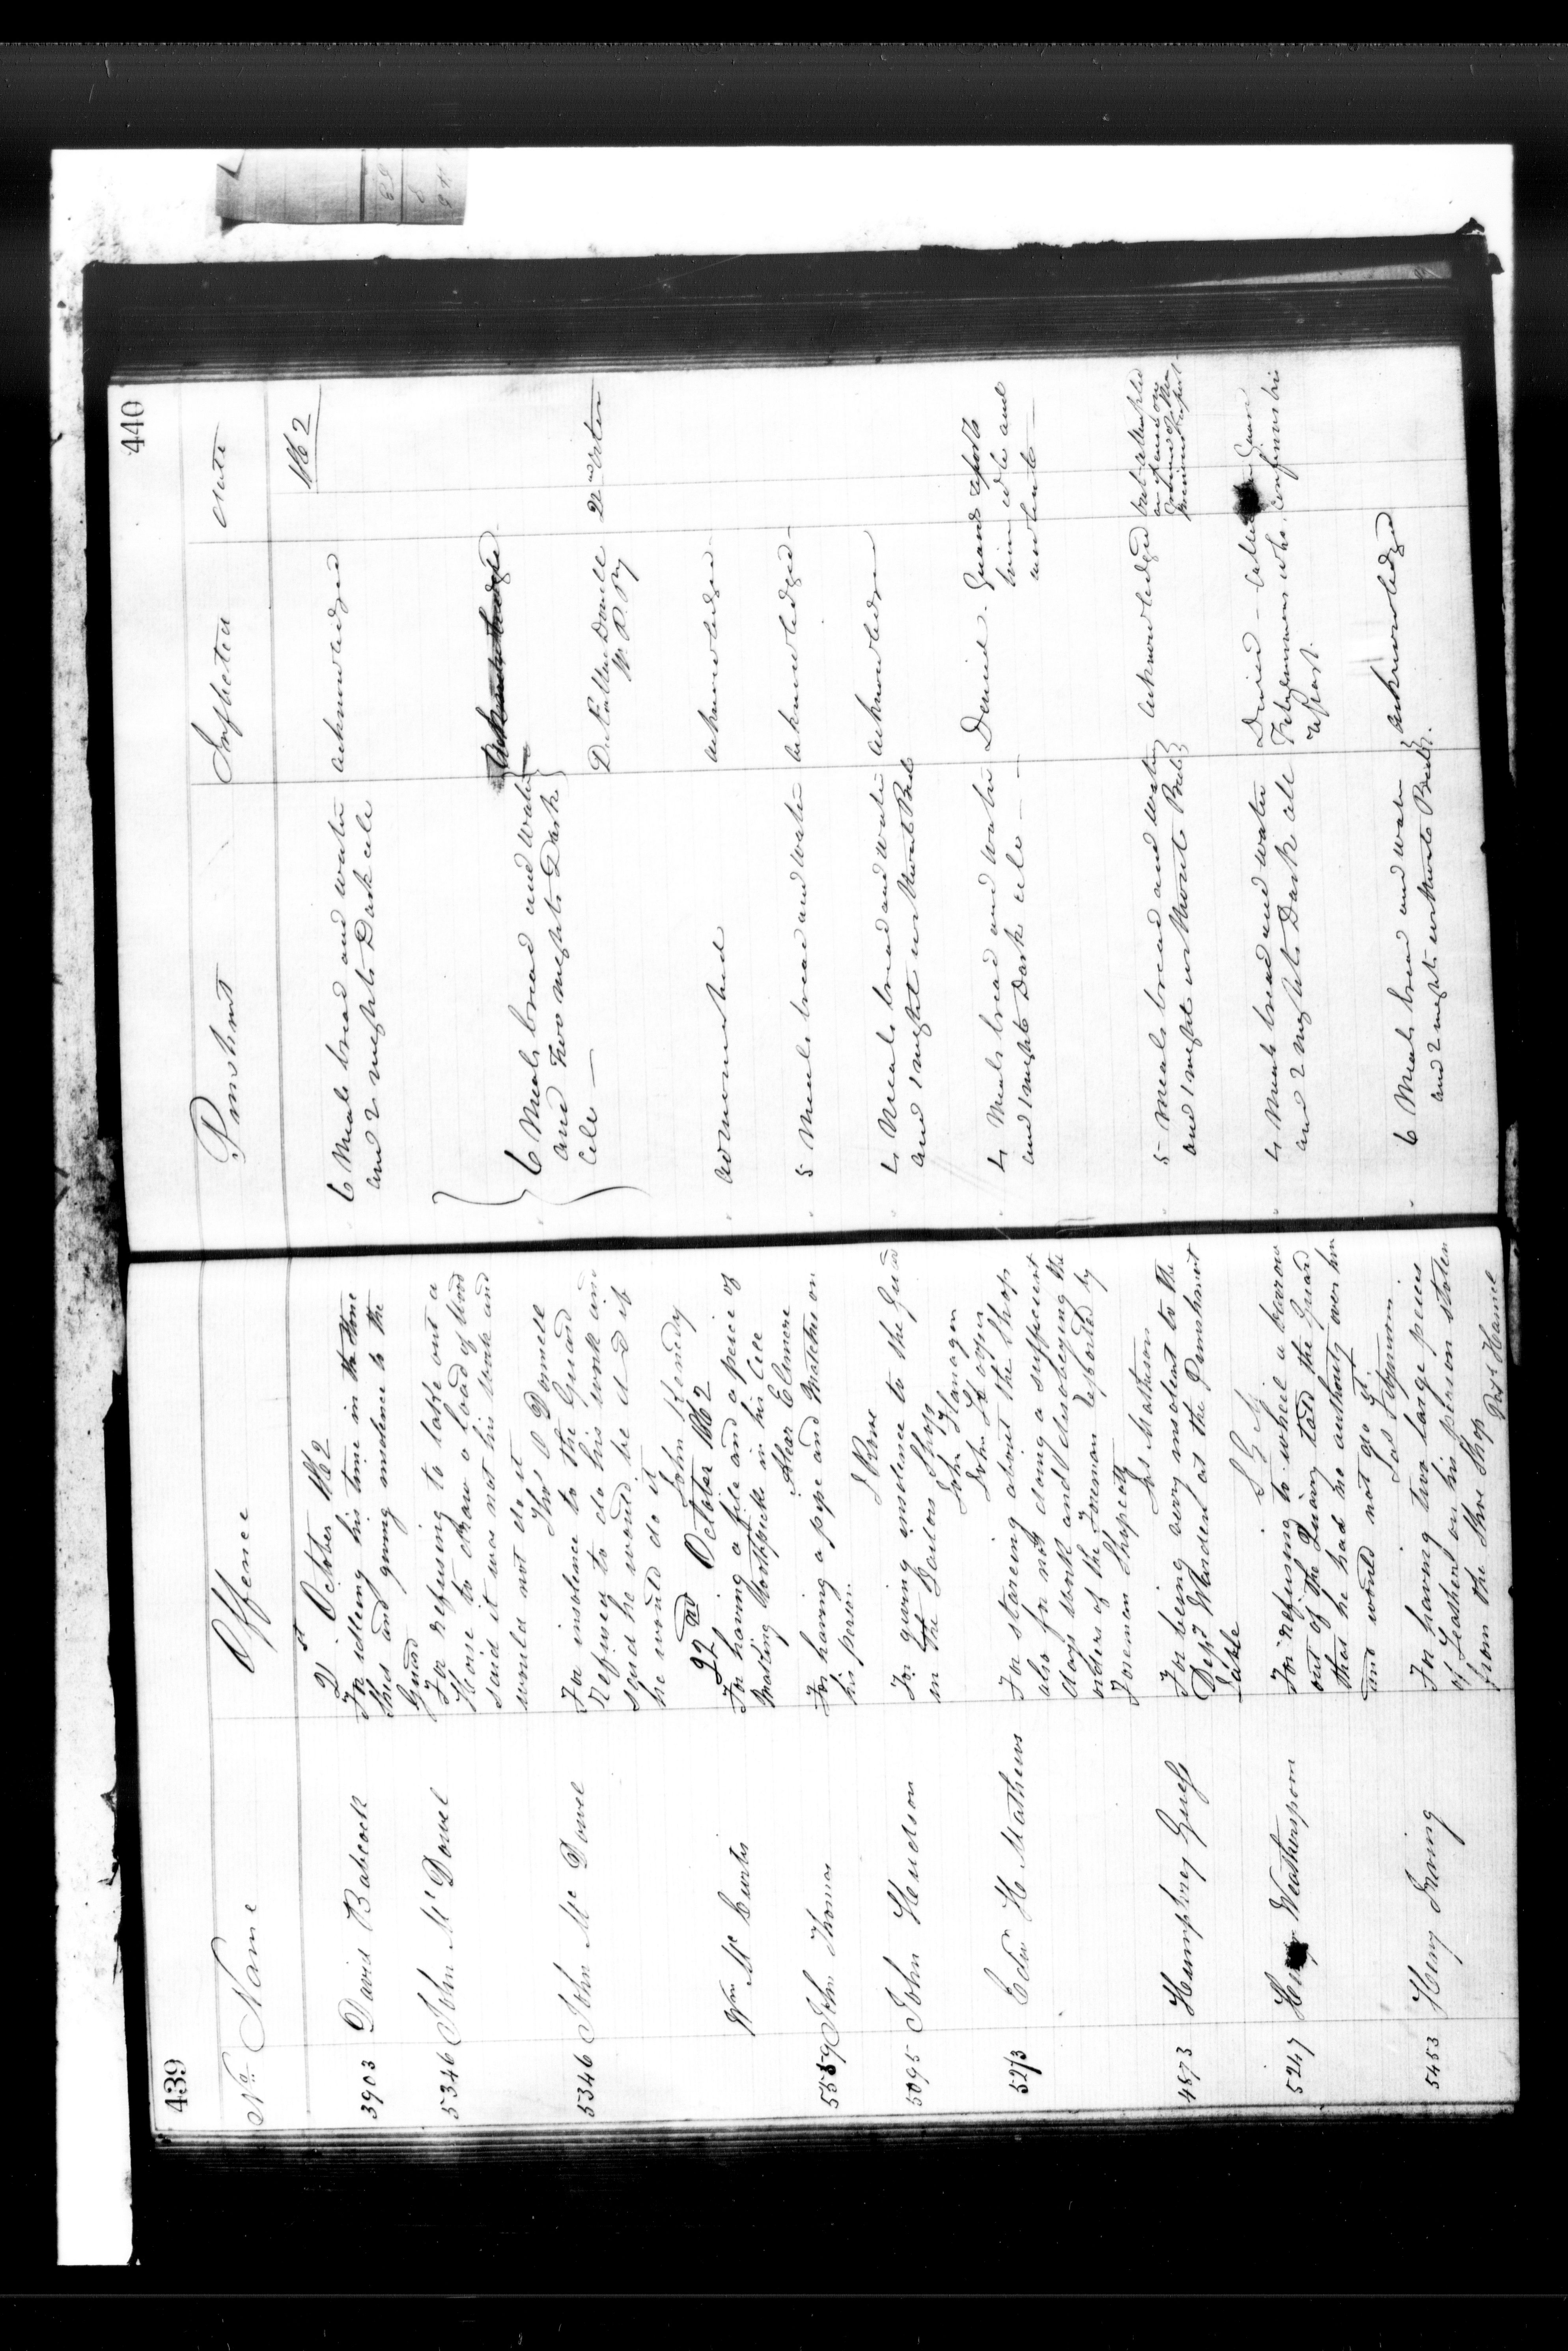 439
No. Name Offence
21st October 1862
3903 David Babcock
For idleing his time in the stone
shed and giving insolence to the
Guard
5346 John Mc Dowel
For refusing to take out a
Horse to draw a load of wood
said it was not his work and
would not do it
Thos O Donnell
5346 John Mc Dowel
For insolence to the Guard
Refusing to do his work and
said he would be d—d if
he would do it
John Kenedy
22nd October 1862
Wm Mc Curtis
For having a file and a peice of
making toothpicks in his cell
Alear Elmore
5559 John Thomas
For having a pipe and Matches on
his person
J Rowe
5095 John Hudson
For giving insolence to the Guard
in the Tailors Shop
John Flanagan
John Cooper
5273 Edw H Mathews
For stareing about the Shop
also for not doing a sufficient
days work and disobeying the
orders of the Foreman Reported by
Foreman Shopeath
Jas Matheson
4573 Humphrey Guess
For being very insolent to the
Depy Warden at the Punishment
Table
5247 Weatherspoon
For refusing to wheel a barrow
out of the Quarry told the Guard
that he had no authority over him
and would not go
Jas Fitzsimmin
5453 Henry Irving
For having two large peices
of Leather on his person stolen
from the Shoe Shop
440
Punishmt Inspector Date
1862
6 Meals bread and water
and 2 nights Dark cell
acknowledged
6 Meals bread and water
and Two nights Dark
Cell
D. McDonell
W. P. Py
admonished
acknowledged
5 Meals bread and water
acknowledged
4 Meals bread and water
and 1 night without Bed
acknowledged
4 Meals bread and water
and 1 night Dark cell
Denied. Guard reports
him idle and
5 Meals bread and water
and 1 night without Bed
acknowledged
4 Meals bread and water
and 2 nights Dark cell
Denied - called Guard
Fitzsimmons who confirms his
report.
6 Meals bread and water
and 2 nights without Bed
acknowledged